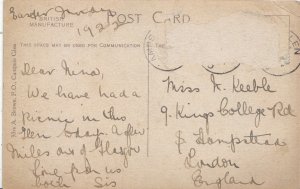 Easter Sunday
1922
BRITISH
MANUFACTURE
POST CARD
THIS SPACE MAY BE USED FOR COMMUNICATION
Dear Nina,
We have had a
picnic in this
Glen today. A few
miles out of Glasgow
Love from us
both Sis
Miss N. Keeble
9. Kings College Rd
S. Hampstead
London
England